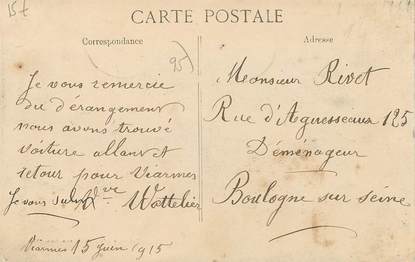 15f
CARTE POSTALE
Correspondance
Adresse
95)
Je vous remercie
du dérangement
nous avons trouvé
voiture allant et
retour pour Viarmes
Je vous salue Vve Wattelier
Viarmes 15 juin 1915
Monsieur Rivet
Rue d'Aguesseaux 125
Déménageur
Boulogne sur seine